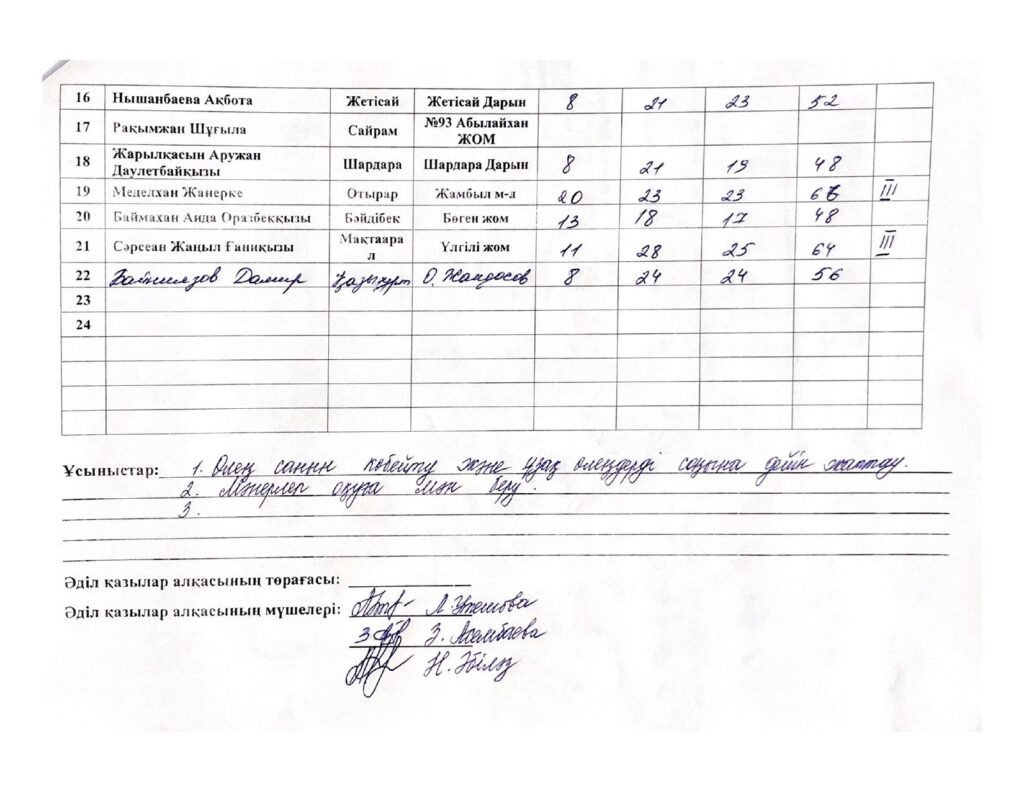 16 Нышанбаева Ақбота Жетісай Жетісай Дарын 8 21 23 52
17 Рақымжан Шұғыла Сайрам №93 Абылайхан
ЖОМ
18 Жарылқасын Аружан
Даулетбайқызы Шардара Шардара Дарын 8 21 19 48
19 Меделхан Жанерке Отырар Жамбыл м-л 20 23 23 66 III
20 Баймахан Аида Оразбекқызы Бәйдібек Бөген жом 13 18 17 48
21 Сәрсеан Жаңыл Ғаниқызы Мақтаара
л Үлгілі жом 11 28 25 64 III
22 Дамир Қазығұрт О. Жандосов 8 24 24 56
23
24
Ұсыныстар: 1. Өлең санын көбейту және ұзақ өлеңдерді соңына дейін жаттау.
2. Мәнерлеп оқуға мән беру.
3.
Әділ қазылар алқасының төрағасы:
Әділ қазылар алқасының мүшелері: Л.
З.
Н. Әбіләз